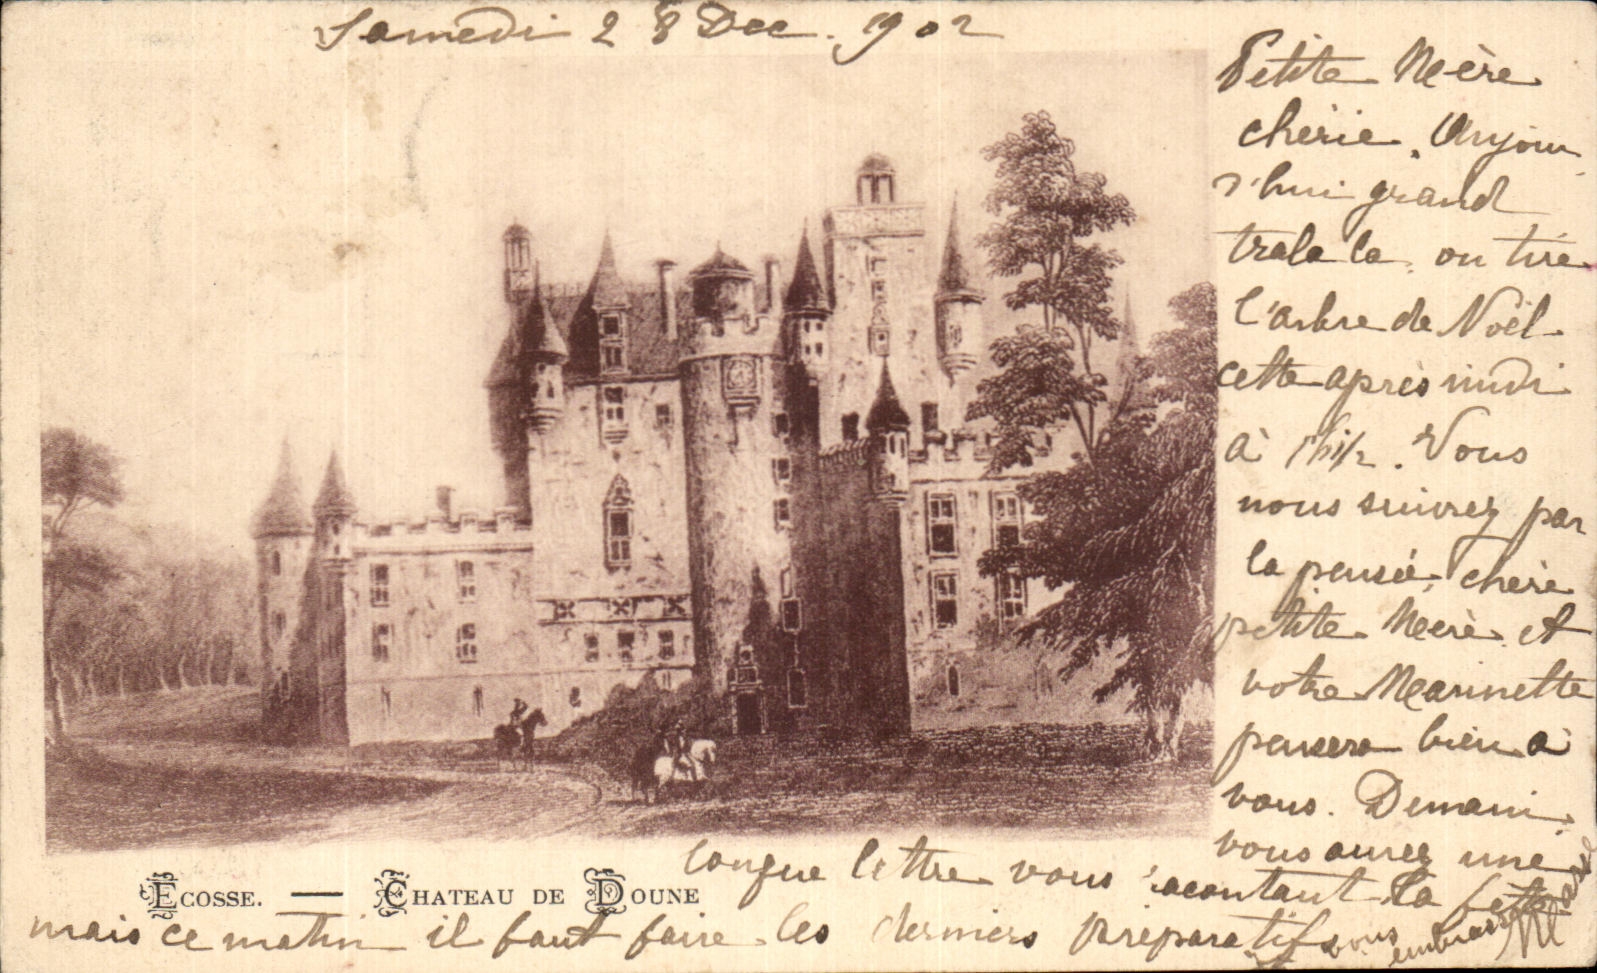 Samedi 28 Dec. 1902
Petite Mère
chérie. Aujour
d'hui grand
tralala. on tire
l'arbre de Noël
cette après midi
à 1h1/2. Vous
nous suivrez par
la pensée, chère
petite Mère et
votre Marinette
pensera bien à
vous. Demain
vous aurez une
longue lettre vous racontant la fête
mais ce matin il faut faire les derniers préparatifs
vous embrasse
ECOSSE. — CHATEAU DE DOUNE